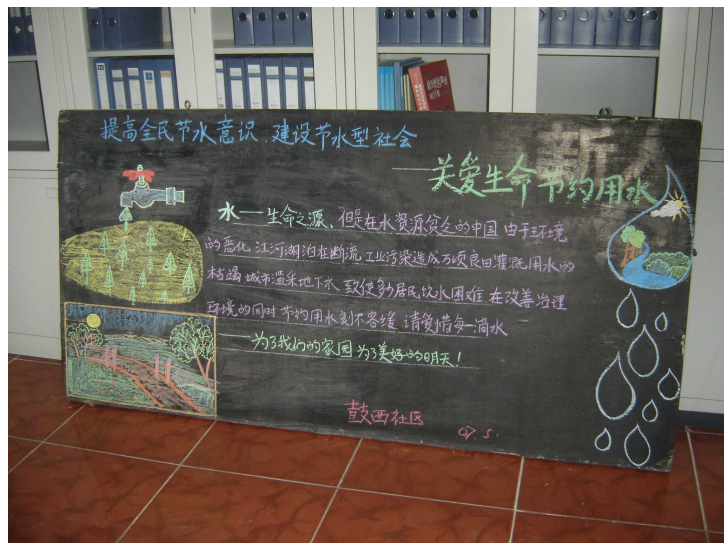 提高全民节水意识、建设节水型社会
——关爱生命节约用水
水——生命之源、但是在水资源贫乏的中国由于环境
的恶化、江河湖泊在断流、工业污染造成万顷良田灌溉用水的
枯竭、城市滥采地下水、致使多居民饮水困难、在改善治理
环境的同时、节约用水刻不容缓、请爱惜每一滴水
——为了我们的家园为了美好的明天！
鼓西社区
07.5.